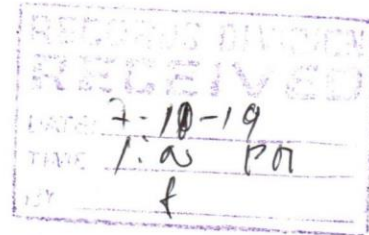 RECORDS DIVISION
RECEIVED
DATE: 7-10-19
TIME 1:00 PM
BY f